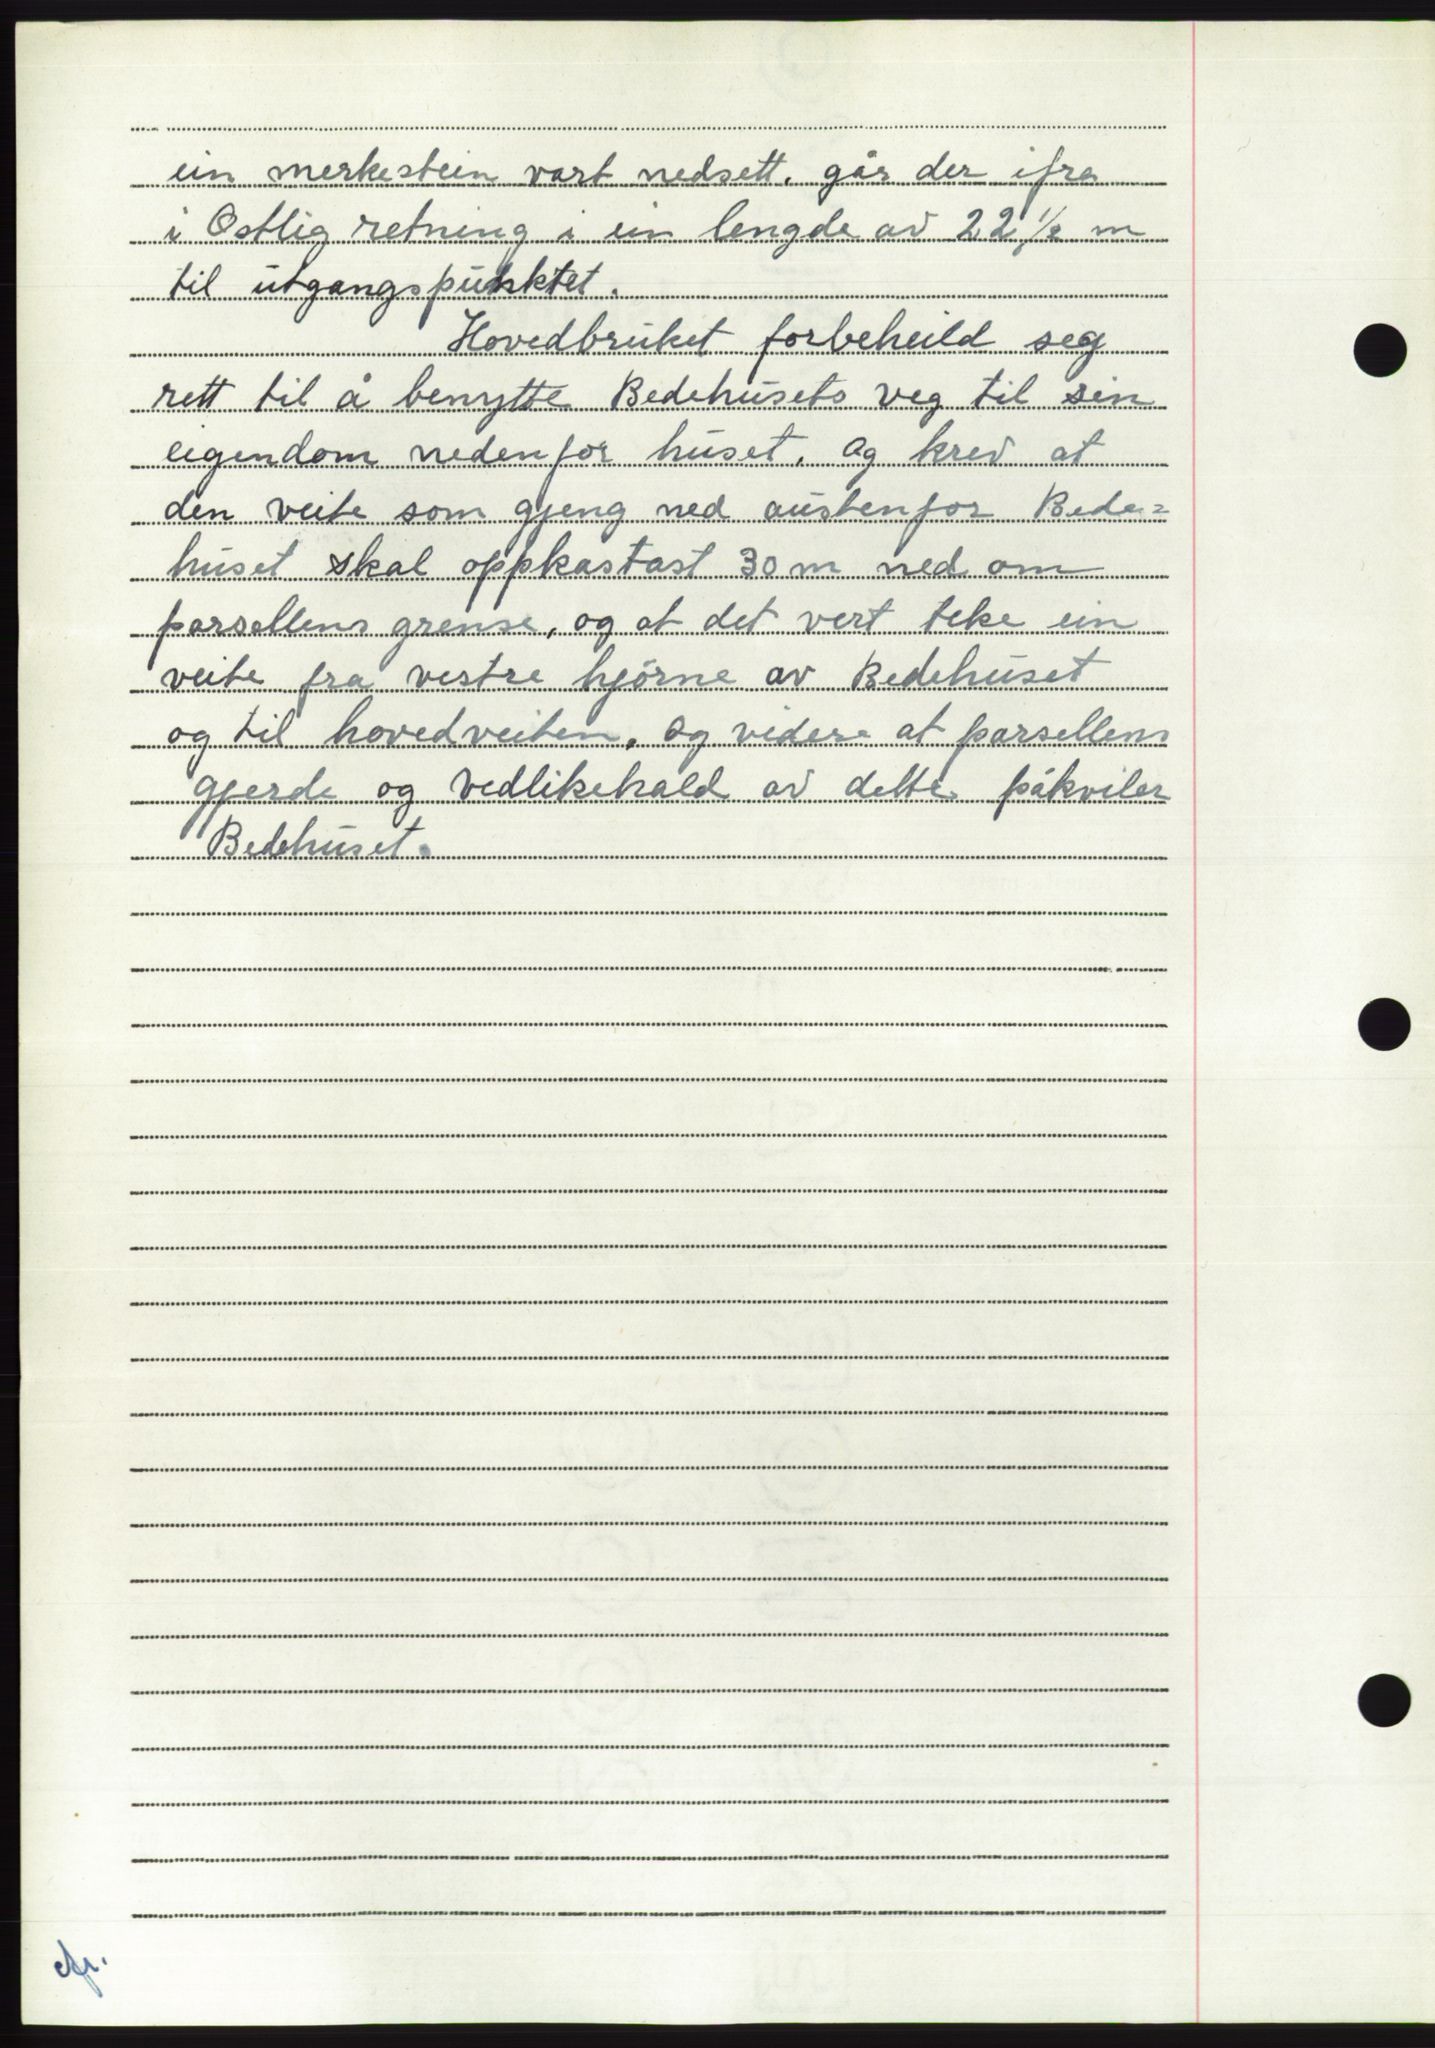 ein merkestein vart nedsett. går der ifra
i Ostlig retning i ein lengde av 22 1/2 m
til utgangspunktet.
Hovedbruket forbeheild seg
rett til å benytte Bedehusets veg til sin
eigendom nedenfor huset. og krev at
den veite som gjeng ned austenfor Bede=
huset skal oppkastast 30 m ned om
parsellens grense, og at det vert teke ein
veite fra vestre hjørne av Bedehuset
og til hovedveiten, og videre at parsellens
gjerde og vedlikehald av dette påkviler
Bedehuset.